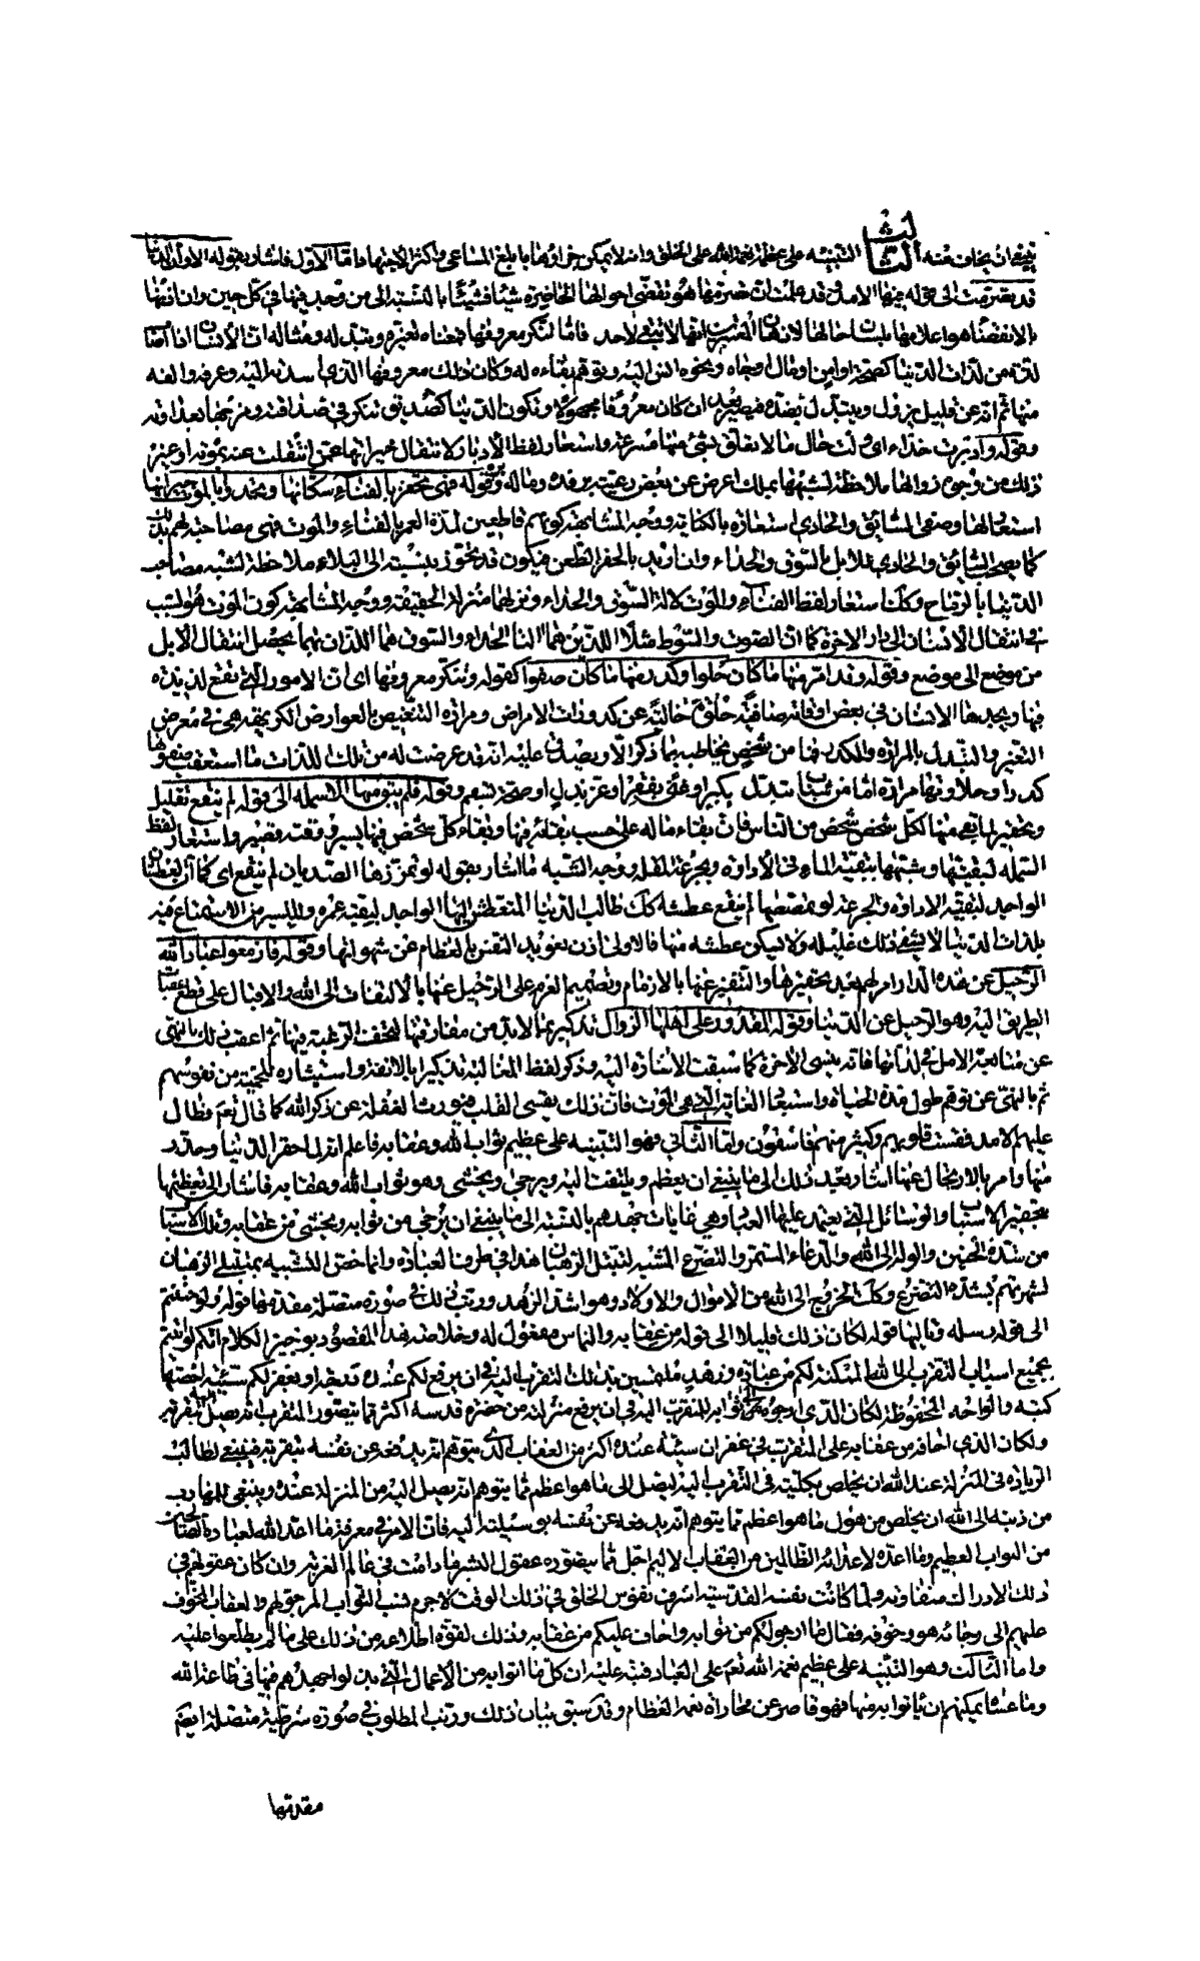 ينبغى ان يخاف منه الثالث التنبيه على عظمة نعمة الله على الخلق وانه لا يمكن جزاؤها بابلغ المساعى واكثر الاجتهاد اما الاول فاشار بقوله الا وان الدنيا
قد تصرمت الى قوله فيها الامل وقد علمت ان تصرمها هو تقضى احوالها الحاضرة شيئا فشيئا بالنسبة الى من وجد فيها فى كل حين وان اذنها
بالانقضاء هو اعلامها بلسان حالها لاذهان المعتبرين انها لا تبقى لاحد فاما تنكر معروفها فمعناه تغيره وتبدله ومثاله ان الانسان اذا اصاب
لذة من لذات الدنيا كصحة او امن او مال او جاه ونحوه انس اليه وتوهم بقاءه له وكان ذلك معروفها الذى اسدته اليه وعرفه والفه
منها ثم انه عن قليل يزول ويتبدل بضده فيصير بعد ان كان معروفا مجهولا وتكون الدنيا كصديق تنكر فى صداقته ومزجها بعداوته
وقوله وادبرت حذاء اى ولت حال ما لا تعلق بشئ منها مسرعة واستعار لفظ الادبار لانتقال خيراتها عمن انتقلت عنه بموته او غير
ذلك من وجوه زوالها ملاحظة لشبهها بملك اعرض عن بعض رعيته برفده وماله وقوله فهى تحفز بالفناء سكانها وتحدو بالموت جيرانها
استعار لها وصفى السائق والحادى استعارة بالكناية ووجه المشابهة كونهم قاطعين لمدة العمر بالفناء والموت فهى مصاحبة لهم بذلك
كما يصحب السائق والحادى للابل بالسوق والحداء وان اريد بالحفز الطعن فيكون قد تجوز بنسبته الى البلاء ملاحظة لشبه مصائب
الدنيا بالرماح وكذلك استعار لفظ الفناء والموت لآلة السوق والحداء ونزلهما منزلة الحقيقة ووجه المشابهة كون الموت هو السبب
فى انتقال الانسان الى دار الاخرة كما ان الصوت والسوط مثلا اللذين هما آلتا الحداء والسوق هما اللذان بهما يحصل انتقال الابل
من موضع الى موضع وقوله وقد امر منها ما كان حلوا وكدر منها ما كان صفوا كقوله وتنكر معروفها اى ان الامور التى تقع لذيذة
فيها ويجدها الانسان فى بعض اوقاته صافية حلوة خالية عن كدورات الامراض ومرارة التنغيص بالعوارض الكريهة هى فى معرض
التغير والتبدل بالمرارة والكدر فما من شخص يخاطبه بما ذكر الا ويصدق عليه انه قد عرضت له من تلك اللذات ما استعقب صفوها
كدرا وحلاوتها مرارة اما من شباب يتبدل بكبر او غنى بفقر او عز بذل او صحة بسقم وقوله فلم يبق منها الا سملة الى قوله لم ينقع تقليل
وتحقير لما بقى منها لكل شخص شخص من الناس فان بقاء ماله على حسب بقائه فيها وبقاء كل شخص فيها يسير ووقته قصير واستعار لفظ
السملة لبقيتها وشبهها ببقية الماء فى الاداوة وبجرعة المقلة ووجه الشبه ما اشار بقوله لو تمززها الصديان لم ينقع اى كما ان العطشان
الواجد لبقية الاداوة والجرعة لو تمصصها لم ينقع عطشه كذلك طالب الدنيا المتعطش اليها الواجد لبقية عمره ولليسير من الاستمتاع فيه
بلذات الدنيا لا يشفى ذلك غليله ولا يسكن عطشه منها فالاولى اذن تعويد النفس بالفطام عن شهواتها وقوله فازمعوا عباد الله
الرحيل عن هذه الدار امر لهم بعد تحقيرها والتنفير عنها بالازماع وتصميم العزم على الرحيل عنها بالالتفات الى الله والاقبال على قطع عقبات
الطريق اليه وهو الرحيل عن الدنيا وقوله المقدور على اهلها الزوال تذكير بما لا بد من مفارقتها لتخف الرغبة فيها ثم اعقب ذلك بالنهى
عن متابعة الامل فى لذاتها فانه ينسى الاخرة كما سبقت الاشارة اليه وذكر لفظ المغالبة تذكيرا بالانفة واستشارة للحمية من نفوسهم
ثم بالنهى عن توهم طول مدة الحياة واستبعاد الغاية التى هى الموت فان ذلك يقسى القلب فيورث الغفلة عن ذكر الله كما قال تعم فطال
عليهم الامد فقست قلوبهم وكثير منهم فاسقون واما الثانى فهو التنبيه على عظيم ثواب الله وعقابه فاعلم انه لما حقر الدنيا وحذر
منها وامر بالارتحال عنها اشار بعد ذلك الى ما ينبغى ان يعظم ويلتفت اليه ويرجى ويخشى وهو ثواب الله وعقابه فاشار الى تعظيمها
بتحقير الاسباب والوسائل التى يعتمد عليها العباد وهى غايات جهدهم بالنسبة الى ما ينبغى ان يرجى من ثوابه ويخشى من عقابه وتلك الاسباب
من شدة الحنين والوله الى الله والدعاء المستمر والتضرع المشبه لتبتل الرهبان هذا فى طرف العبادة وانما خص التشبيه بمتبتلى الرهبان
لشهرتهم بشدة التضرع وكذلك الخروج الى الله من الاموال والاولاد وهو اشد الزهد ورتب ذلك فى صورة متصلة مقدمها قوله ولو حننتم
الى قوله رسله وتاليها قوله لكان ذلك قليلا الى قوله من عقابه والتماس مفعول له وخلاصة هذا المقصود بوجيز الكلام انكم لو اتيتم
بجميع اسباب التقرب الى الله الممكنة لكم من عبادة وزهد ملتمسين بذلك التقرب اليه فى ان يرفع لكم عنده درجة او يغفر لكم سيئة احصتها
كتبه والواحه المحفوظة لكان الذى ارجوه لكم من ثوابه للمتقرب اليه فى ان يرفع منزلته من حضرة قدسه اكثر مما يتصور المتقرب انه يصل اليه بتقربه
ولكان الذى اخافه من عقابه على المتقرب فى غفران سيئة عنده اكثر من العقاب الذى يتوهم انه يدفعه عن نفسه بتقربه فينبغى لطالب
الزيادة فى المنزلة عند الله ان يخلص بكليته فى التقرب اليه ليصل الى ما هو اعظم مما يتوهم انه يصل اليه من المنزلة عنده وينبغى للهارب
من ذنبه الى الله ان يخلص من هول ما هو اعظم مما يتوهم انه يدفعه عن نفسه بوسيلته اليه فان الامر فى معرفة ما اعد الله لعباده الصالحين
من الثواب العظيم وما اعده لاعدائه الظالمين من العقاب الاليم اجل مما يتصوره عقول البشر ما دامت فى عالم الغربة وان كان عقولهم فى
ذلك الادراك متفاوتة ولما كانت نفسه القدسية اشرف نفوس الخلق فى ذلك الوقت لا جرم نسب الثواب المرجو لهم والعقاب المخوف
عليهم الى رجائه هو وخوفه فقال ما ارجو لكم من ثوابه واخاف عليكم من عقابه وذلك لقوة اطلاعه من ذلك على ما لم يطلعوا عليه
واما الثالث وهو التنبيه على عظيم نعمة الله تعم على العباد فنبه عليه ان كل ما اتوا به من الاعمال التى بذلوا جهدهم فيها فى طاعة الله
وما عساه يمكنهم ان ياتوا به منها فهو قاصر عن مجازاة نعمه العظام وقد سبق بيان ذلك ورتب المطلوب فى صورة شرطية متصلة ايضا
مقدمها